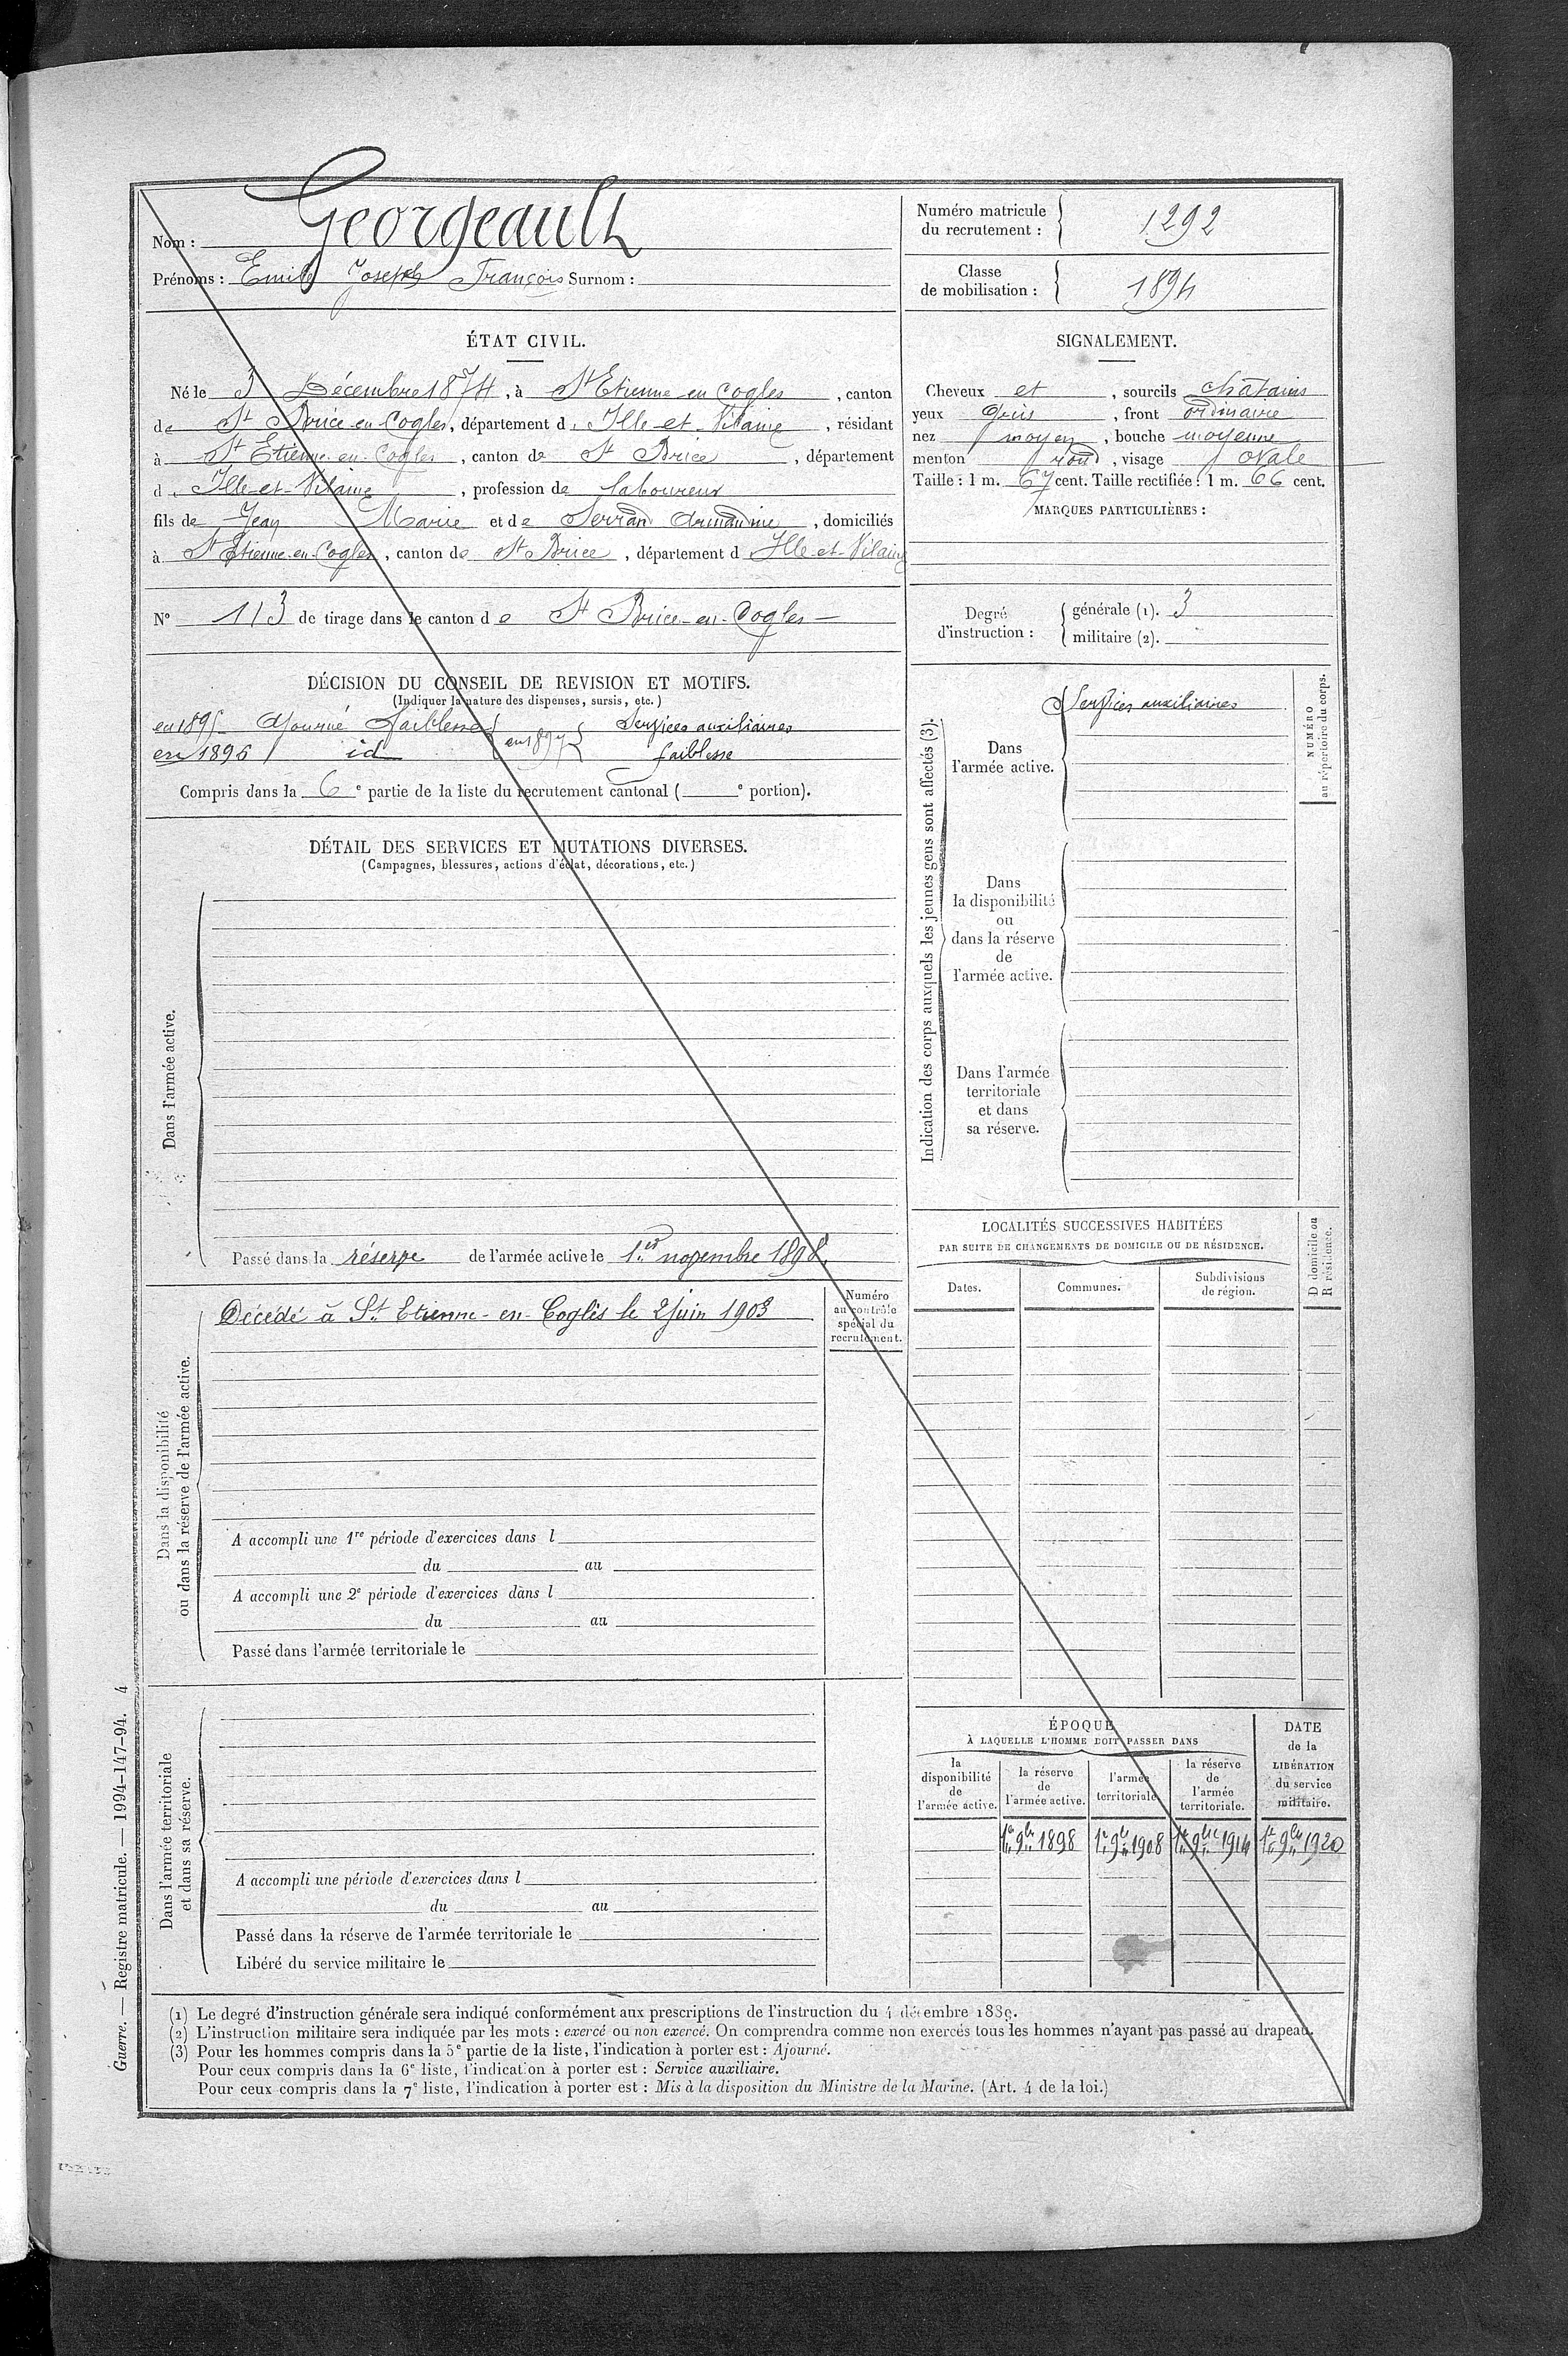 Nom : Georgeault
Prénoms : Emile Joseph François Surnom :
Numéro matricule
du recrutement : 1292
Classe
de mobilisation : 1894
ÉTAT CIVIL.
Né le 3 Décembre 1874, à St Etienne en Cogles, canton
de St Brice-en-Cogles, département d. Ille-et-Vilaine, résidant
à St Etienne-en-Cogles, canton de St Brice, département
d. Ille-et-Vilaine, profession de laboureur
fils de Jean Marie et de Serrand Armandine, domiciliés
à St Etienne-en-Cogles, canton de St Brice, département d Ille-et-Vilaine
N° 113 de tirage dans le canton de St Brice-en-Cogles —
SIGNALEMENT.
Cheveux et , sourcils chatains
yeux gris , front ordinaire
nez moyen , bouche moyenne
menton rond , visage ovale
Taille : 1 m. 67 cent. Taille rectifiée : 1 m. 66 cent.
MARQUES PARTICULIÈRES :
Degré
d'instruction :
générale (1). 3
militaire (2).
DÉCISION DU CONSEIL DE REVISION ET MOTIFS.
(Indiquer la nature des dispenses, sursis, etc.)
en 1895 Ajourné Faiblesse
en 1896 id
en 1897
Services auxiliaires
faiblesse
Compris dans la 6e partie de la liste du recrutement cantonal ( e portion).
DÉTAIL DES SERVICES ET MUTATIONS DIVERSES.
(Campagnes, blessures, actions d'éclat, décorations, etc.)
Dans l'armée active.
Passé dans la réserve de l'armée active le 1er novembre 1898.
Indication des corps auxquels les jeunes gens sont affectés (3).
Dans
l'armée active.
Services auxiliaires
NUMÉRO
au répertoire du corps.
Dans
la disponibilité
ou
dans la réserve
de
l'armée active.
Dans l'armée
territoriale
et dans
sa réserve.
Dans la disponibilité
ou dans la réserve de l'armée active.
Décédé à St Etienne-en-Coglès le 2 juin 1903
Numéro
au contrôle
spécial du
recrutement.
A accompli une 1re période d'exercices dans l
du au
A accompli une 2e période d'exercices dans l
du au
Passé dans l'armée territoriale le
LOCALITÉS SUCCESSIVES HABITÉES
PAR SUITE DE CHANGEMENTS DE DOMICILE OU DE RÉSIDENCE.
Dates.
Communes.
Subdivisions
de région.
D domicile ou
R résidence.
Dans l'armée territoriale
et dans sa réserve.
A accompli une période d'exercices dans l
du au
Passé dans la réserve de l'armée territoriale le
Libéré du service militaire le
ÉPOQUE
À LAQUELLE L'HOMME DOIT PASSER DANS
la
disponibilité
de
l'armée active.
la réserve
de
l'armée active.
l'armée
territoriale.
la réserve
de
l'armée
territoriale.
DATE
de la
LIBÉRATION
du service
militaire.
1er 9bre 1898 1er 9bre 1908 1er 9bre 1914 1er 9bre 1920
(1) Le degré d'instruction générale sera indiqué conformément aux prescriptions de l'instruction du 4 décembre 1889.
(2) L'instruction militaire sera indiquée par les mots : exercé ou non exercé. On comprendra comme non exercés tous les hommes n'ayant pas passé au drapeau.
(3) Pour les hommes compris dans la 5e partie de la liste, l'indication à porter est : Ajourné.
Pour ceux compris dans la 6e liste, l'indication à porter est : Service auxiliaire.
Pour ceux compris dans la 7e liste, l'indication à porter est : Mis à la disposition du Ministre de la Marine. (Art. 4 de la loi.)
Guerre. — Registre matricule. — 1994-147-94. 4